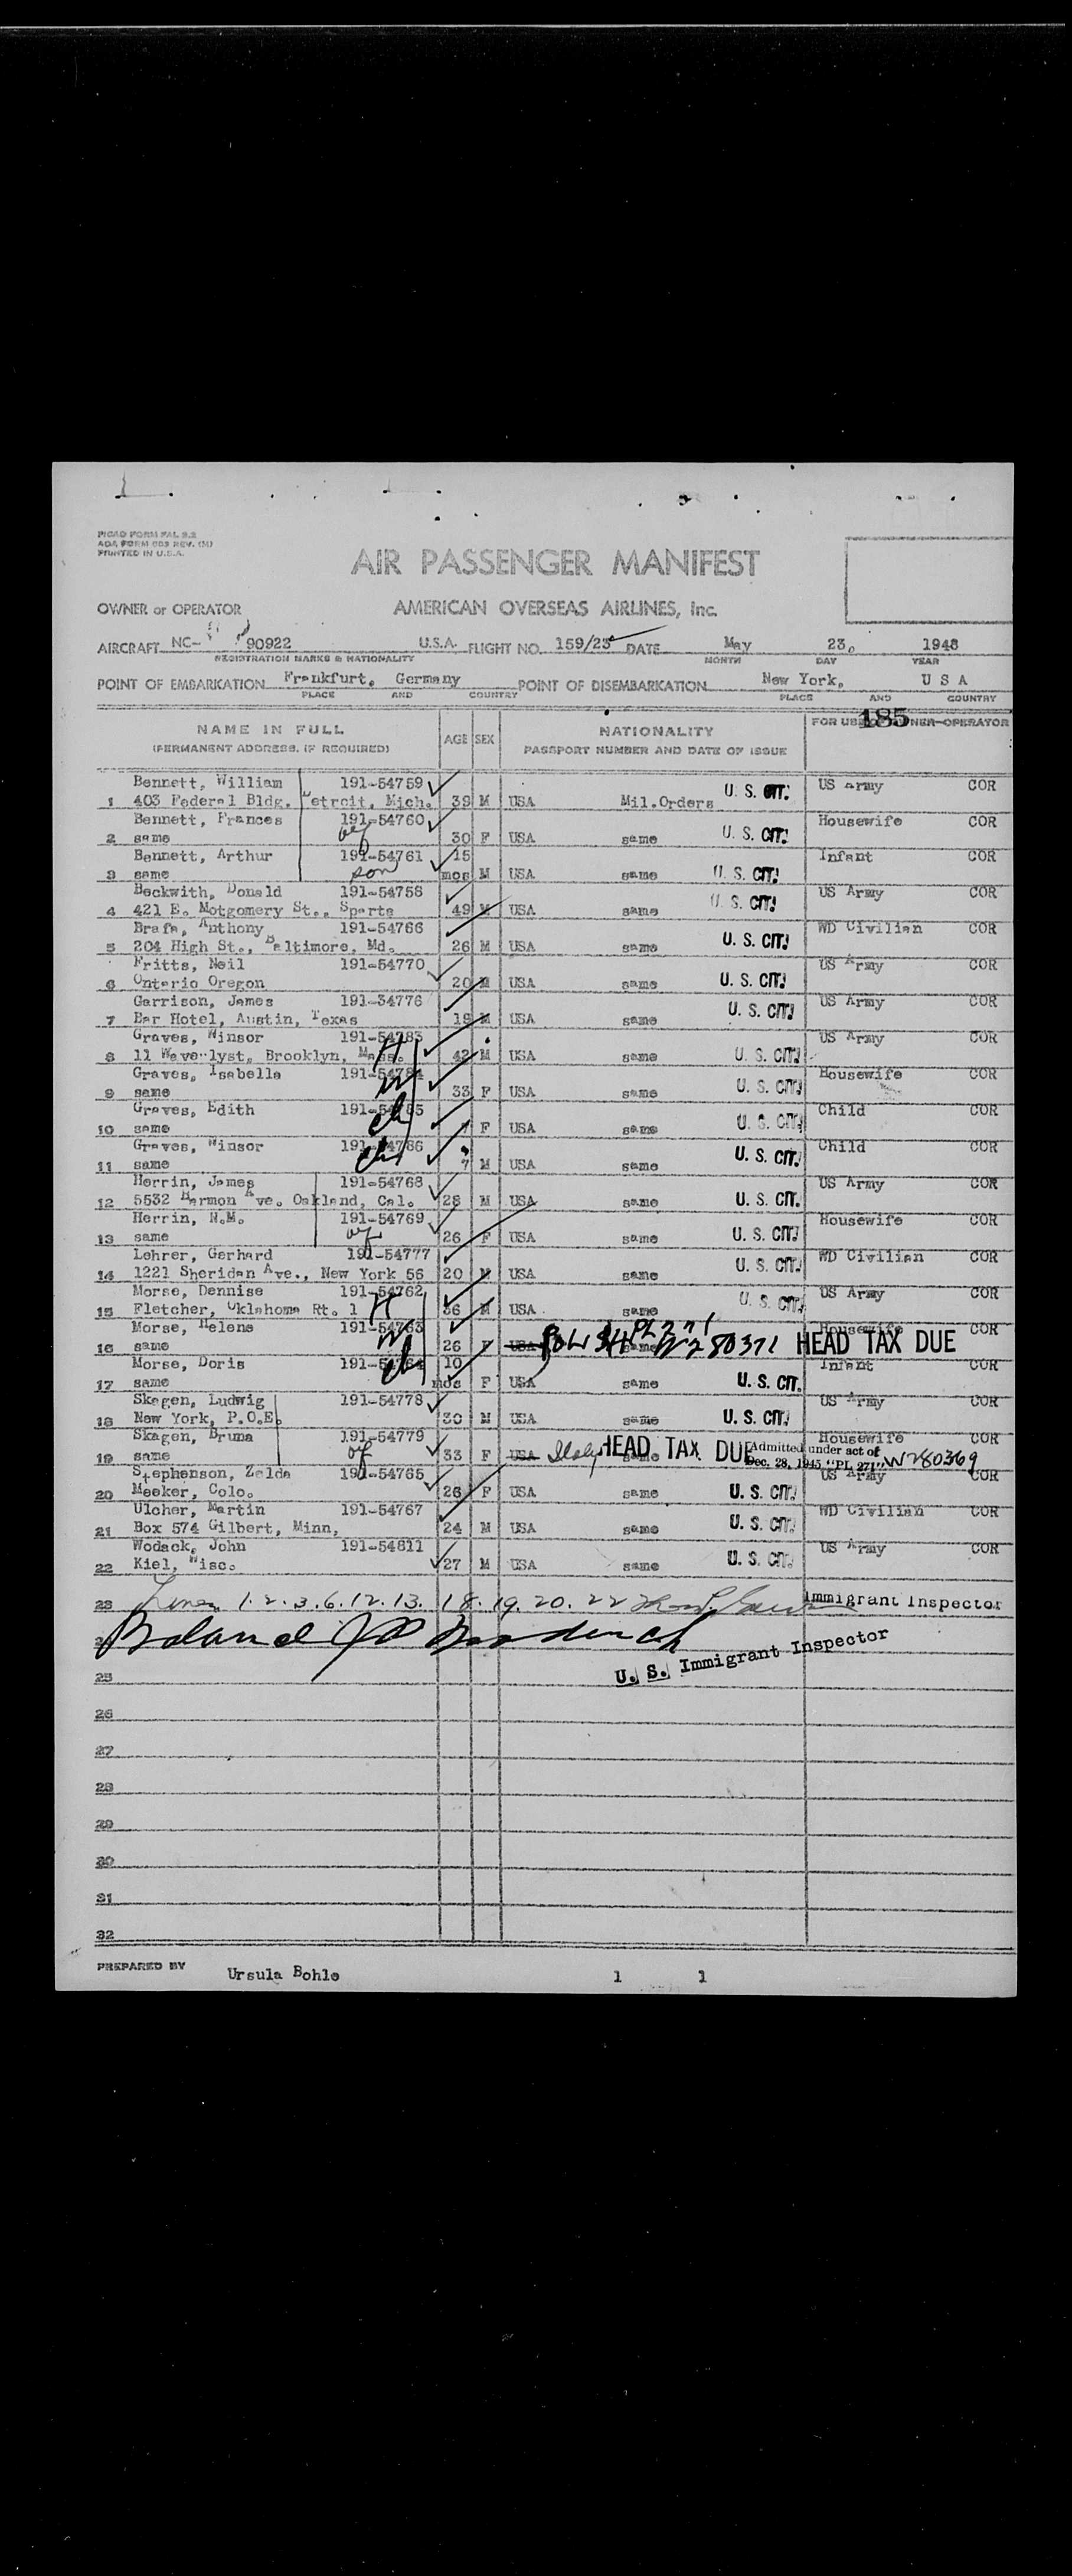 PICAO FORM PAL 2.2
AOA FORM 003 REV. (M)
PRINTED IN U.S.A.
AIR PASSENGER MANIFEST
OWNER or OPERATOR AMERICAN OVERSEAS AIRLINES, Inc.
AIRCRAFT NC- 90922 U.S.A. FLIGHT NO. 159/23 DATE May 23, 1948
REGISTRATION MARKS & NATIONALITY MONTH DAY YEAR
POINT OF EMBARKATION Frankfurt, Germany POINT OF DISEMBARKATION New York, U S A
PLACE AND COUNTRY PLACE AND COUNTRY
185
NAME IN FULL AGE SEX NATIONALITY FOR USE OWNER-OPERATOR
(PERMANENT ADDRESS, IF REQUIRED) PASSPORT NUMBER AND DATE OF ISSUE
Bennett, William 191-54759 U. S. CIT. US Army COR
1 403 Federal Bldg. Detroit, Mich. 39 M USA Mil.Orders
Bennett, Frances 191-54760 Housewife COR
2 same wf 30 F USA same U. S. CIT.
Bennett, Arthur 191-54761 15 Infant COR
3 same son mos M USA same U. S. CIT.
Beckwith, Donald 191-54758 US Army COR
4 421 E. Motgomery St., Sparta 49 M USA same U. S. CIT.
Brafa, Anthony 191-54766 WD Civilian COR
5 204 High St., Baltimore, Md. 26 M USA same U. S. CIT.
Fritts, Neil 191-54770 US Army COR
6 Ontario Oregon 20 M USA same U. S. CIT.
Garrison, James 191-34776 US Army COR
7 Bar Hotel, Austin, Texas 19 M USA same U. S. CIT.
Graves, Winsor 191-54783 US Army COR
8 11 Waverlyst, Brooklyn, Mass. H 42 M USA same U. S. CIT.
Graves, Isabella 191-54784 Housewife COR
9 same W 33 F USA same U. S. CIT.
Graves, Edith 191-54785 Child COR
10 same ch 7 F USA same U. S. CIT.
Graves, Winsor 191-54786 Child COR
11 same ch 7 M USA same U. S. CIT.
Herrin, James 191-54768 US Army COR
12 5532 Harmon Ave. Oakland, Cal. 28 M USA same U. S. CIT.
Herrin, N.M. 191-54769 Housewife COR
13 same wf 26 F USA same U. S. CIT.
Lehrer, Gerhard 191-54777 WD Civilian COR
14 1221 Sheridan Ave., New York 56 20 M USA same U. S. CIT.
Morse, Dennise 191-54762 US Army COR
15 Fletcher, Oklahoma Rt. 1 H 36 M USA same U. S. CIT.
Morse, Helene 191-54763 PL 271 Housewife COR
16 same W 26 F USA same W280371 HEAD TAX DUE
Morse, Doris 191-54764 10 Infant COR
17 same ch mos F USA same U. S. CIT.
Skagen, Ludwig 191-54778 US Army COR
18 New York, P.O.E. 30 M USA same U. S. CIT.
Skagen, Bruna 191-54779 Housewife COR
19 same wf 33 F USA Italy same HEAD TAX DUE Admitted under act of Dec. 28, 1945 "PL 271" W280369
Stephenson, Zelda 191-54765 US Army COR
20 Meeker, Colo. 26 F USA same U. S. CIT.
Ulcher, Martin 191-54767 WD Civilian COR
21 Box 574 Gilbert, Minn, 24 M USA same U. S. CIT.
Wodack, John 191-54811 US Army COR
22 Kiel, Wisc. 27 M USA same U. S. CIT.
23 Lines 1.2.3.6.12.13. 18.19.20.22 Immigrant Inspector
U. S. Immigrant Inspector
25
26
27
28
29
30
31
32
PREPARED BY Ursula Bohle 1 1